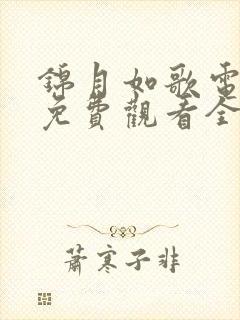 錦月如歌電
免費觀看全
蕭寒子非